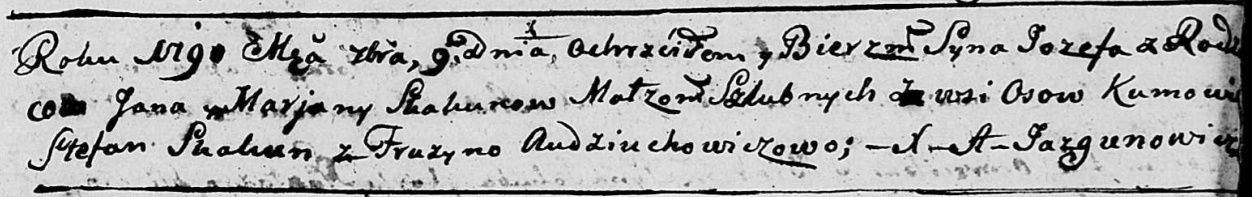 Roku 1790 Mca 7bra, 9. Dnia, Ochrzciłem y Bierzm Syna Jozefa z Rodzi
cow Jana y Marjany Skakunow Małzon Szlubnych z wsi Osow Kumowi
Stefan Skakun z Fruzyno Audziuchowiczowo; – X – A – Jazgunowicz